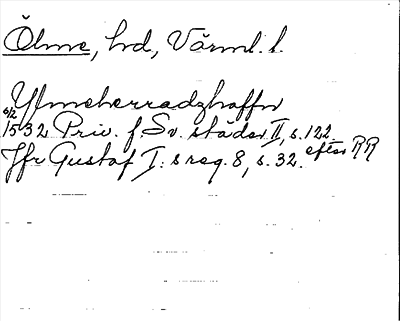 Ölme, hd, Värml. l.
Ylmeherradzhaffn
6/2 1532 Priv. f Sv. städer II, s. 122. efter RR
Jfr Gustaf I:s reg. 8, s. 32.